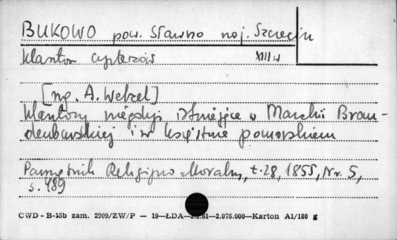 BUKOWO pow. Sławno woj. Szczecin
klasztor cystersów XIII w
[np. A. Wetzel]
klasztory niegdyś istniejące w Marchii Bran-
denburskiej i w księstwie pomorskiem
Pamiętnik Religijno Moralny, t. 28, 1855, Nr. 5,
s. 489
CWD - B-15b zam. 2909/ZW/P — 19—ŁDA— .61—2.075.000—Karton A1/180 g